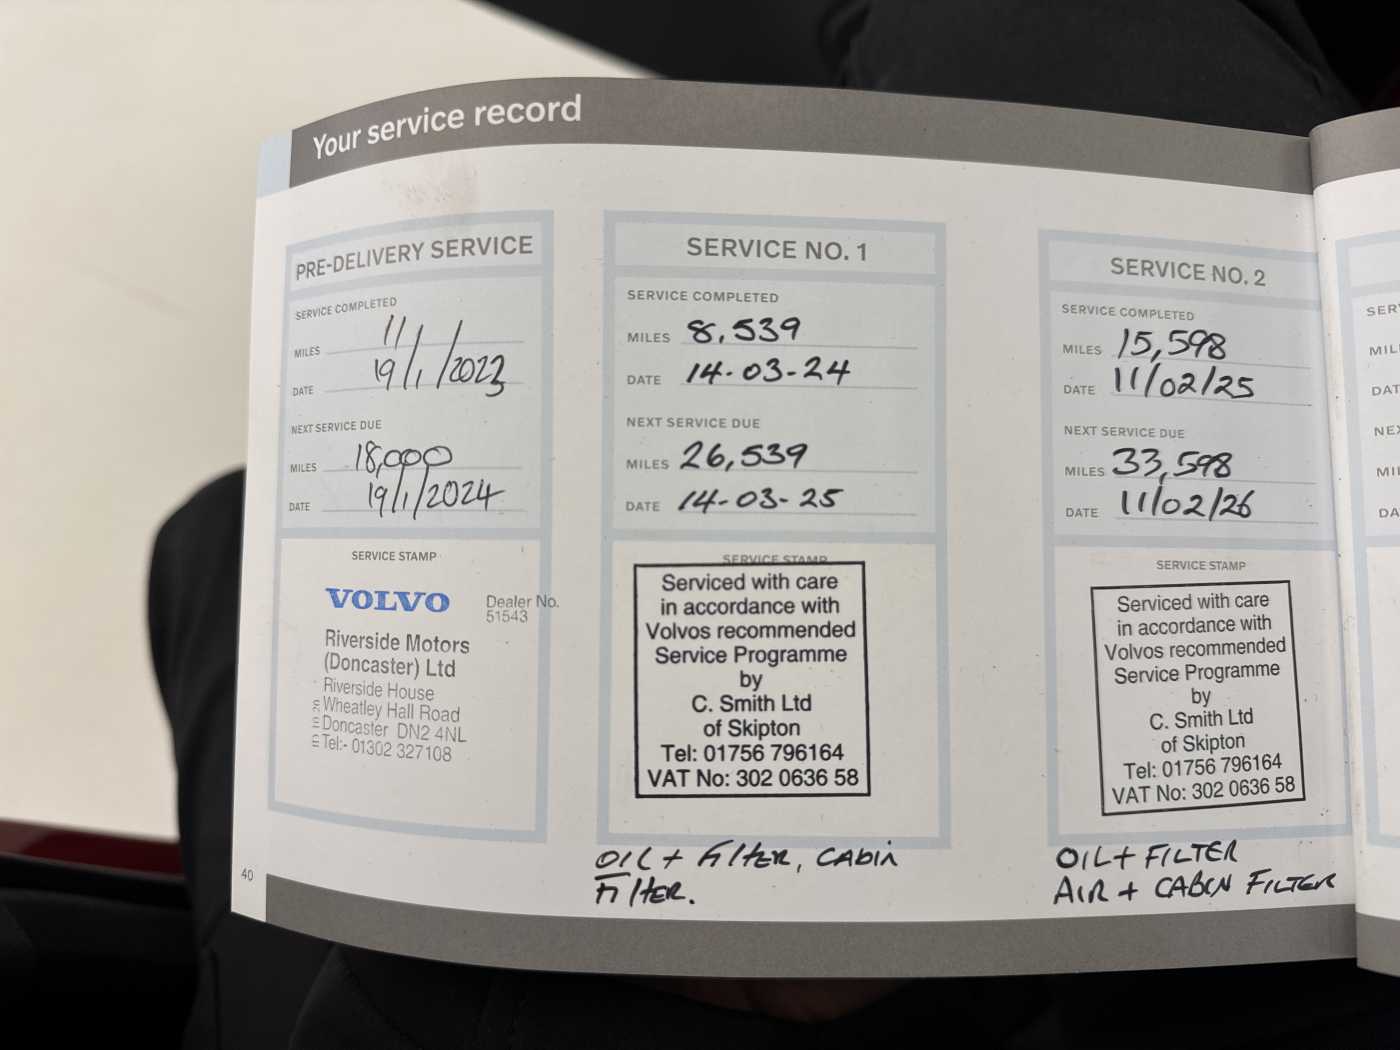 Your service record
PRE-DELIVERY SERVICE
SERVICE COMPLETED
MILES 11
DATE 19/1/2023
NEXT SERVICE DUE
MILES 18,000
DATE 19/1/2024
SERVICE STAMP
VOLVO
Dealer No.
51543
Riverside Motors
(Doncaster) Ltd
Riverside House
Wheatley Hall Road
Doncaster DN2 4NL
Tel:- 01302 327108
SERVICE NO. 1
SERVICE COMPLETED
MILES 8,539
DATE 14-03-24
NEXT SERVICE DUE
MILES 26,539
DATE 14-03-25
SERVICE STAMP
Serviced with care
in accordance with
Volvos recommended
Service Programme
by
C. Smith Ltd
of Skipton
Tel: 01756 796164
VAT No: 302 0636 58
OIL + FilTER, CABIN
FilTER.
SERVICE NO. 2
SERVICE COMPLETED
MILES 15,598
DATE 11/02/25
NEXT SERVICE DUE
MILES 33,598
DATE 11/02/26
SERVICE STAMP
Serviced with care
in accordance with
Volvos recommended
Service Programme
by
C. Smith Ltd
of Skipton
Tel: 01756 796164
VAT No: 302 0636 58
OIL + FILTER
AIR + CABIN FILTER
SER
MIL
DAT
NEX
MIL
DA
40